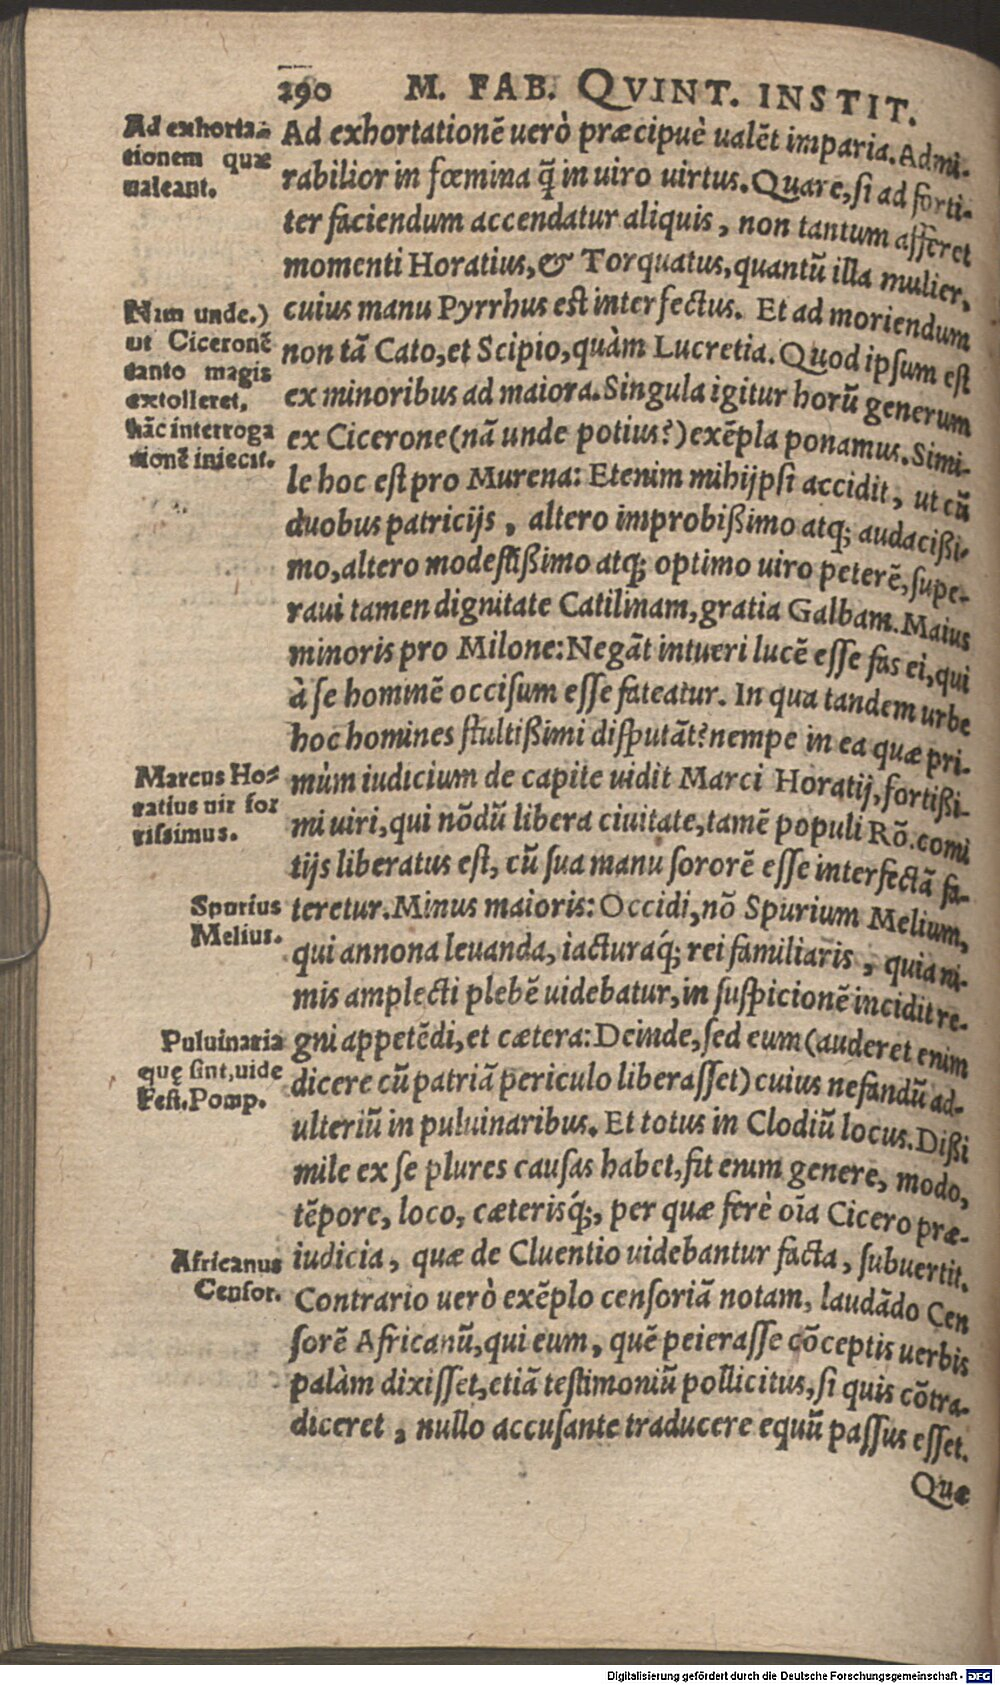 290 M. FAB. QVINT. INSTIT.
Ad exhorta-
tionem quæ
ualeant.
Ad exhortationẽ uerò præcipuè ualẽt imparia. Admi-
rabilior in fœmina q̃ in uiro uirtus. Quare, si ad forti-
ter faciendum accendatur aliquis, non tantum afferet
momenti Horatius, & Torquatus, quantũ illa mulier,
cuius manu Pyrrhus est interfectus. Et ad moriendum
non tã Cato, et Scipio, quàm Lucretia. Quod ipsum est
ex minoribus ad maiora. Singula igitur horũ generum
ex Cicerone (nã unde potius?) exẽpla ponamus. Simi-
le hoc est pro Murena: Etenim mihijpsi accidit, ut cũ
duobus patricijs, altero improbißimo atq; audacißi-
mo, altero modestißimo atq; optimo uiro peterẽ, supe-
raui tamen dignitate Catilinam, gratia Galbam. Maius
minoris pro Milone: Negãt intueri lucẽ esse fas ei, qui
à se hominẽ occisum esse fateatur. In qua tandem urbe
hoc homines stultißimi disputãt? nempe in ea quæ pri-
mùm iudicium de capite uidit Marci Horatij, fortißi-
mi uiri, qui nõdũ libera ciuitate, tamẽ populi Rõ. comi
tijs liberatus est, cũ sua manu sororẽ esse interfectã fa-
teretur. Minus maioris: Occidi, nõ Spurium Melium,
qui annona leuanda, iacturaq́; rei familiaris, quia ni-
mis amplecti plebẽ uidebatur, in suspicionẽ incidit re-
gni appetẽdi, et cætera: Deinde, sed eum (auderet enim
dicere cũ patriã periculo liberasset) cuius nefandũ ad-
ulteriũ in puluinaribus. Et totus in Clodiũ locus. Dißi
mile ex se plures causas habet, fit enim genere, modo,
tẽpore, loco, cæterisq́;, per quæ ferè oĩa Cicero præ-
iudicia, quæ de Cluentio uidebantur facta, subuertit.
Contrario uerò exẽplo censoriã notam, laudãdo Cen
sorẽ Africanũ, qui eum, quẽ peierasse cõceptis uerbis
palàm dixisset, etiã testimoniũ pollicitus, si quis cõtra-
diceret, nullo accusante traducere equũ passus esset.
Quæ
Nam unde.)
ut Ciceronẽ
tanto magis
extolleret,
hãc interroga
tionẽ iniecit.
Marcus Ho-
ratius uir for
tissimus.
Spurius
Melius.
Puluinaria
quę sint, uide
Fest. Pomp.
Africanus
Censor.
Digitalisierung gefördert durch die Deutsche Forschungsgemeinschaft - DFG